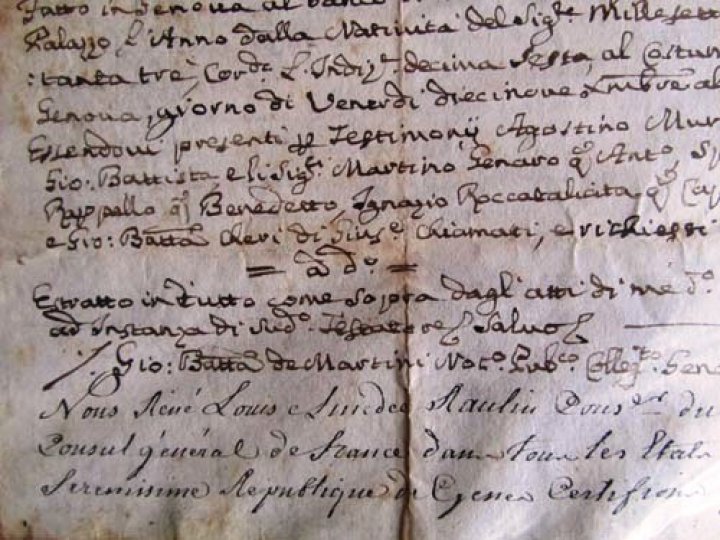 Fatto in Genova al Banco
Palazzo L'Anno dalla Natività del Sigre Millesett
:tanta trè, Corde L'Indize decima sesta, al Costum
Genova, giorno di Venerdi diecinove Xmbre al
Essendovi presenti p Testimonij Agostino Mur
Gio: Battista, e li Sigri Martino Genaro qm Anto,
Rappallo qm Benedetto, Ignazio Roccatalicita, qm Ca
e Gio: Batta Cheri di Giuse Chiamati, e richiesti
= a do =
Estratto in tutto come sopra dagli atti di me do
ad Instanza di sudo Testatore Salvo
Gio: Batta de Martini Noto Pubco Collegto Geno
Nous René Louis Amedée Raulin Conser du
Consul général de France dans tous les Etats
Serenissime Republique de Genes Certifions